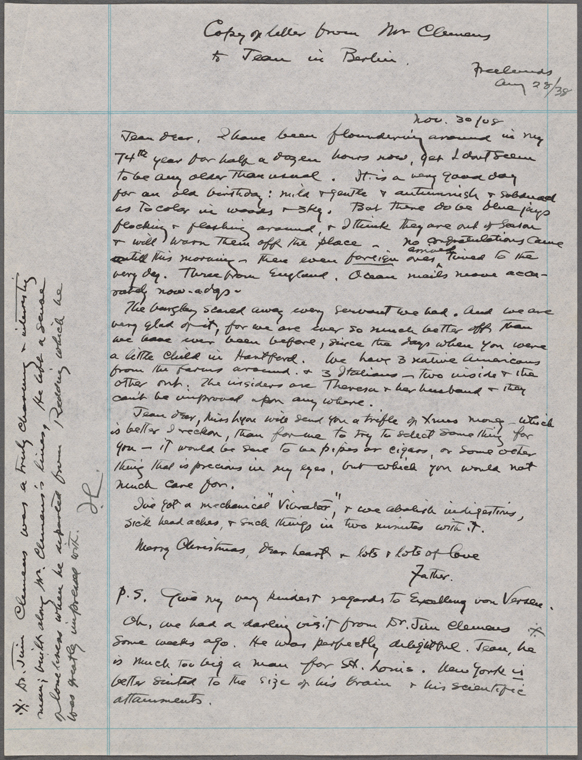 Copy of letter from Mr Clemens
to Jean in Berlin.
Freelands
Aug 28/38
Nov. 30/08
Jean dear, I have been floundering around in my
74th year for half a dozen hours now, yet I don't seem
to be any older than usual. It is a very good day
for an old birthday: mild & gentle & autumnish & subdued
as to color in woods & sky. But there do be blue jays
flocking & flashing around, & I think they are out of season
& will warn them off the place. No congratulations came
until this morning - then even foreign ones, timed to the
very day. Three from England. Ocean mails move accu-
rately now-a-days.
The burglar scared away every servant we had. And we are
very glad of it, for we are ever so much better off than
we have ever been before, since the days when you were
a little child in Hartford. We have 3 native Americans
from the farms around, & 3 Italians - two inside & the
other out. The insiders are Theresa & her husband & they
can't be improved upon any where.
Jean dear, Miss Lyon will send you a trifle of Xmas money - which
is better I reckon, than for me to try to select something for
you - it would be sure to be pipes or cigars, or some other
thing that is precious in my eyes, but which you would not
much care for.
I've got a mechanical "Vibrator", & we abolish indigestions,
sick head aches, & such things in two minutes with it.
Merry Christmas, dear heart & lots & lots of love
Father.
P.S. Give my very kindest regards to von Versen.
Oh, we had a darling visit from Dr. Jim Clemens *
some weeks ago. He was perfectly delightful. Jean, he
is much too big a man for St. Louis. New York is
better suited to the size of his brain & his scientific
attainments.
* Dr. Jim Clemens was a truly charming & interesting
man; built along Mr. Clemens's lines. He left a sense
of loneliness when he departed from Redding which he
was greatly impressed with.